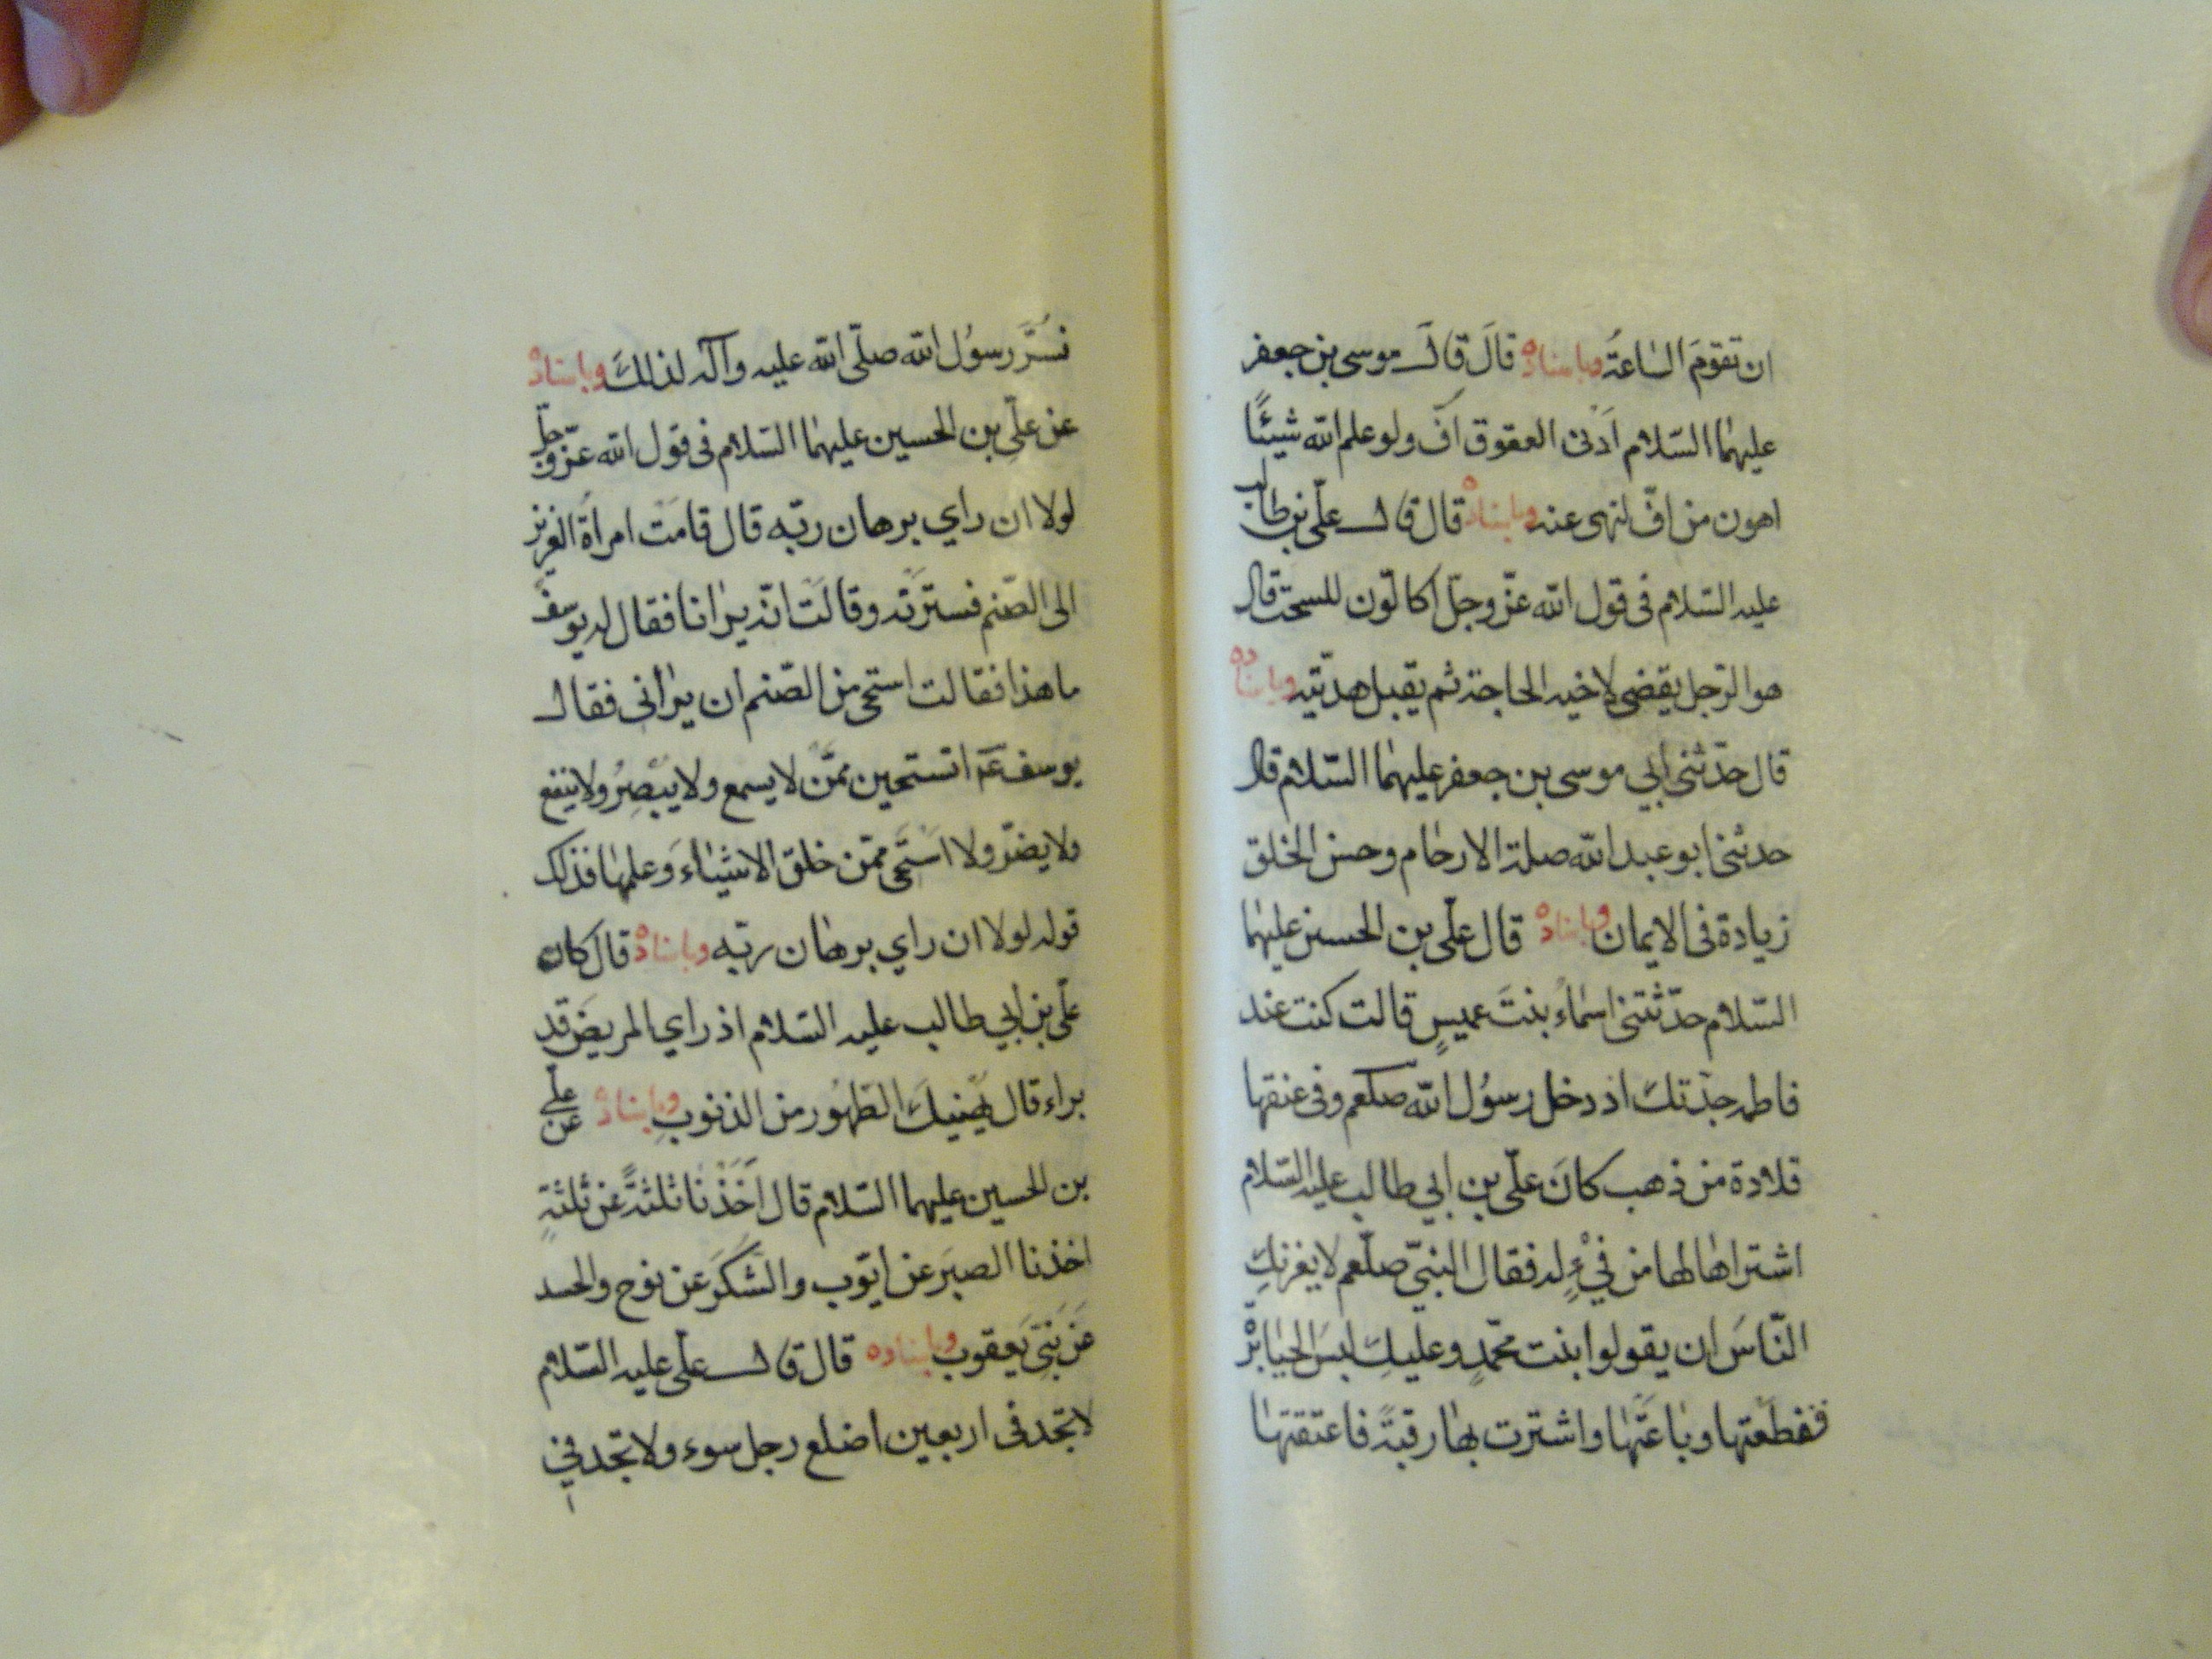 ان تقومَ الساعةُ وباسناده قالَ قالَ موسى بن جعفر
عليهما السّلام اَدنى العقوق افّ ولو علم الله شيئًا
اهون من افّ لنهى عنه وباسناده قال قال علىّ بن طالب
عليه السّلام فى قول الله عزّ وجلّ اكالّون للسحت قال
هو الرّجل يقضى لاخيه الحاجة ثم يقبل هديّته وباسناده
قال حدّثنى ابي موسى بن جعفر عليهما السّلام قال
حدثنى ابو عبد الله صلة الارحام وحسن الخلق
زيادة فى الايمان وباسناده قال علىّ بن الحسين عليهما
السّلام حدّثتنى اسماءُ بنتَ عميسٍ قالت كنت عند
فاطمه جدّتك اذ دخل رسوُل الله صلعم وفى عنقها
قلادة من ذهب كانَ علىّ بن ابي طالب عليه السّلام
اشتراها لها من فيْءٍ له فقال النبىّ صلّعم لا يغرنكِ
النّاسَ ان يقولوا بنت محمّدٍ وعليكِ لبسَ الجبابرْ
فقطعتها وباعَتْها واشترت بها رقبةً فاعتقتها
فسُرَّ رسوُل الله صلّى الله عليه وآله لذلكَ وباسناده
عن علىّ بن الحسين عليهما السّلام فى قول الله عزّ وجلّ
لولا ان راي برهان ربّه قال قامَت امراةُ العزيز
الى الصّنم فسترَته وقالَت انّه يرانا فقال له يوسفُ
ما هذا فقالت استحى من الصّنم ان يرانى فقال
يوسف عَه اتستحين ممَّن لا يسمع ولا يبْصِرُ ولا ينفع
ولا يضرّ ولا اسْتَحى ممّن خلق الاشياءَ وَعلمها فذلك
قوله لولا ان راي برهان ربّه وباسناده قال كان
علىّ بن ابي طالب عليه السّلام اذ راي المريضَ قد
براء قال يهنيكَ الطّهُور من الذنوبِ وباسناده عن علىّ
بن الحسين عليهما السّلام قال اَخَذْنا ثلثةً عن ثلثةٍ
اخذنا الصبرَ عن ايّوب والشّكرَ عن نوح والحسد
عَن بَنِى يَعقوب وباسناده قال قال علىّ عليه السّلام
لا تجد فى اربعين اضلع رجل سوء ولا تجد فى